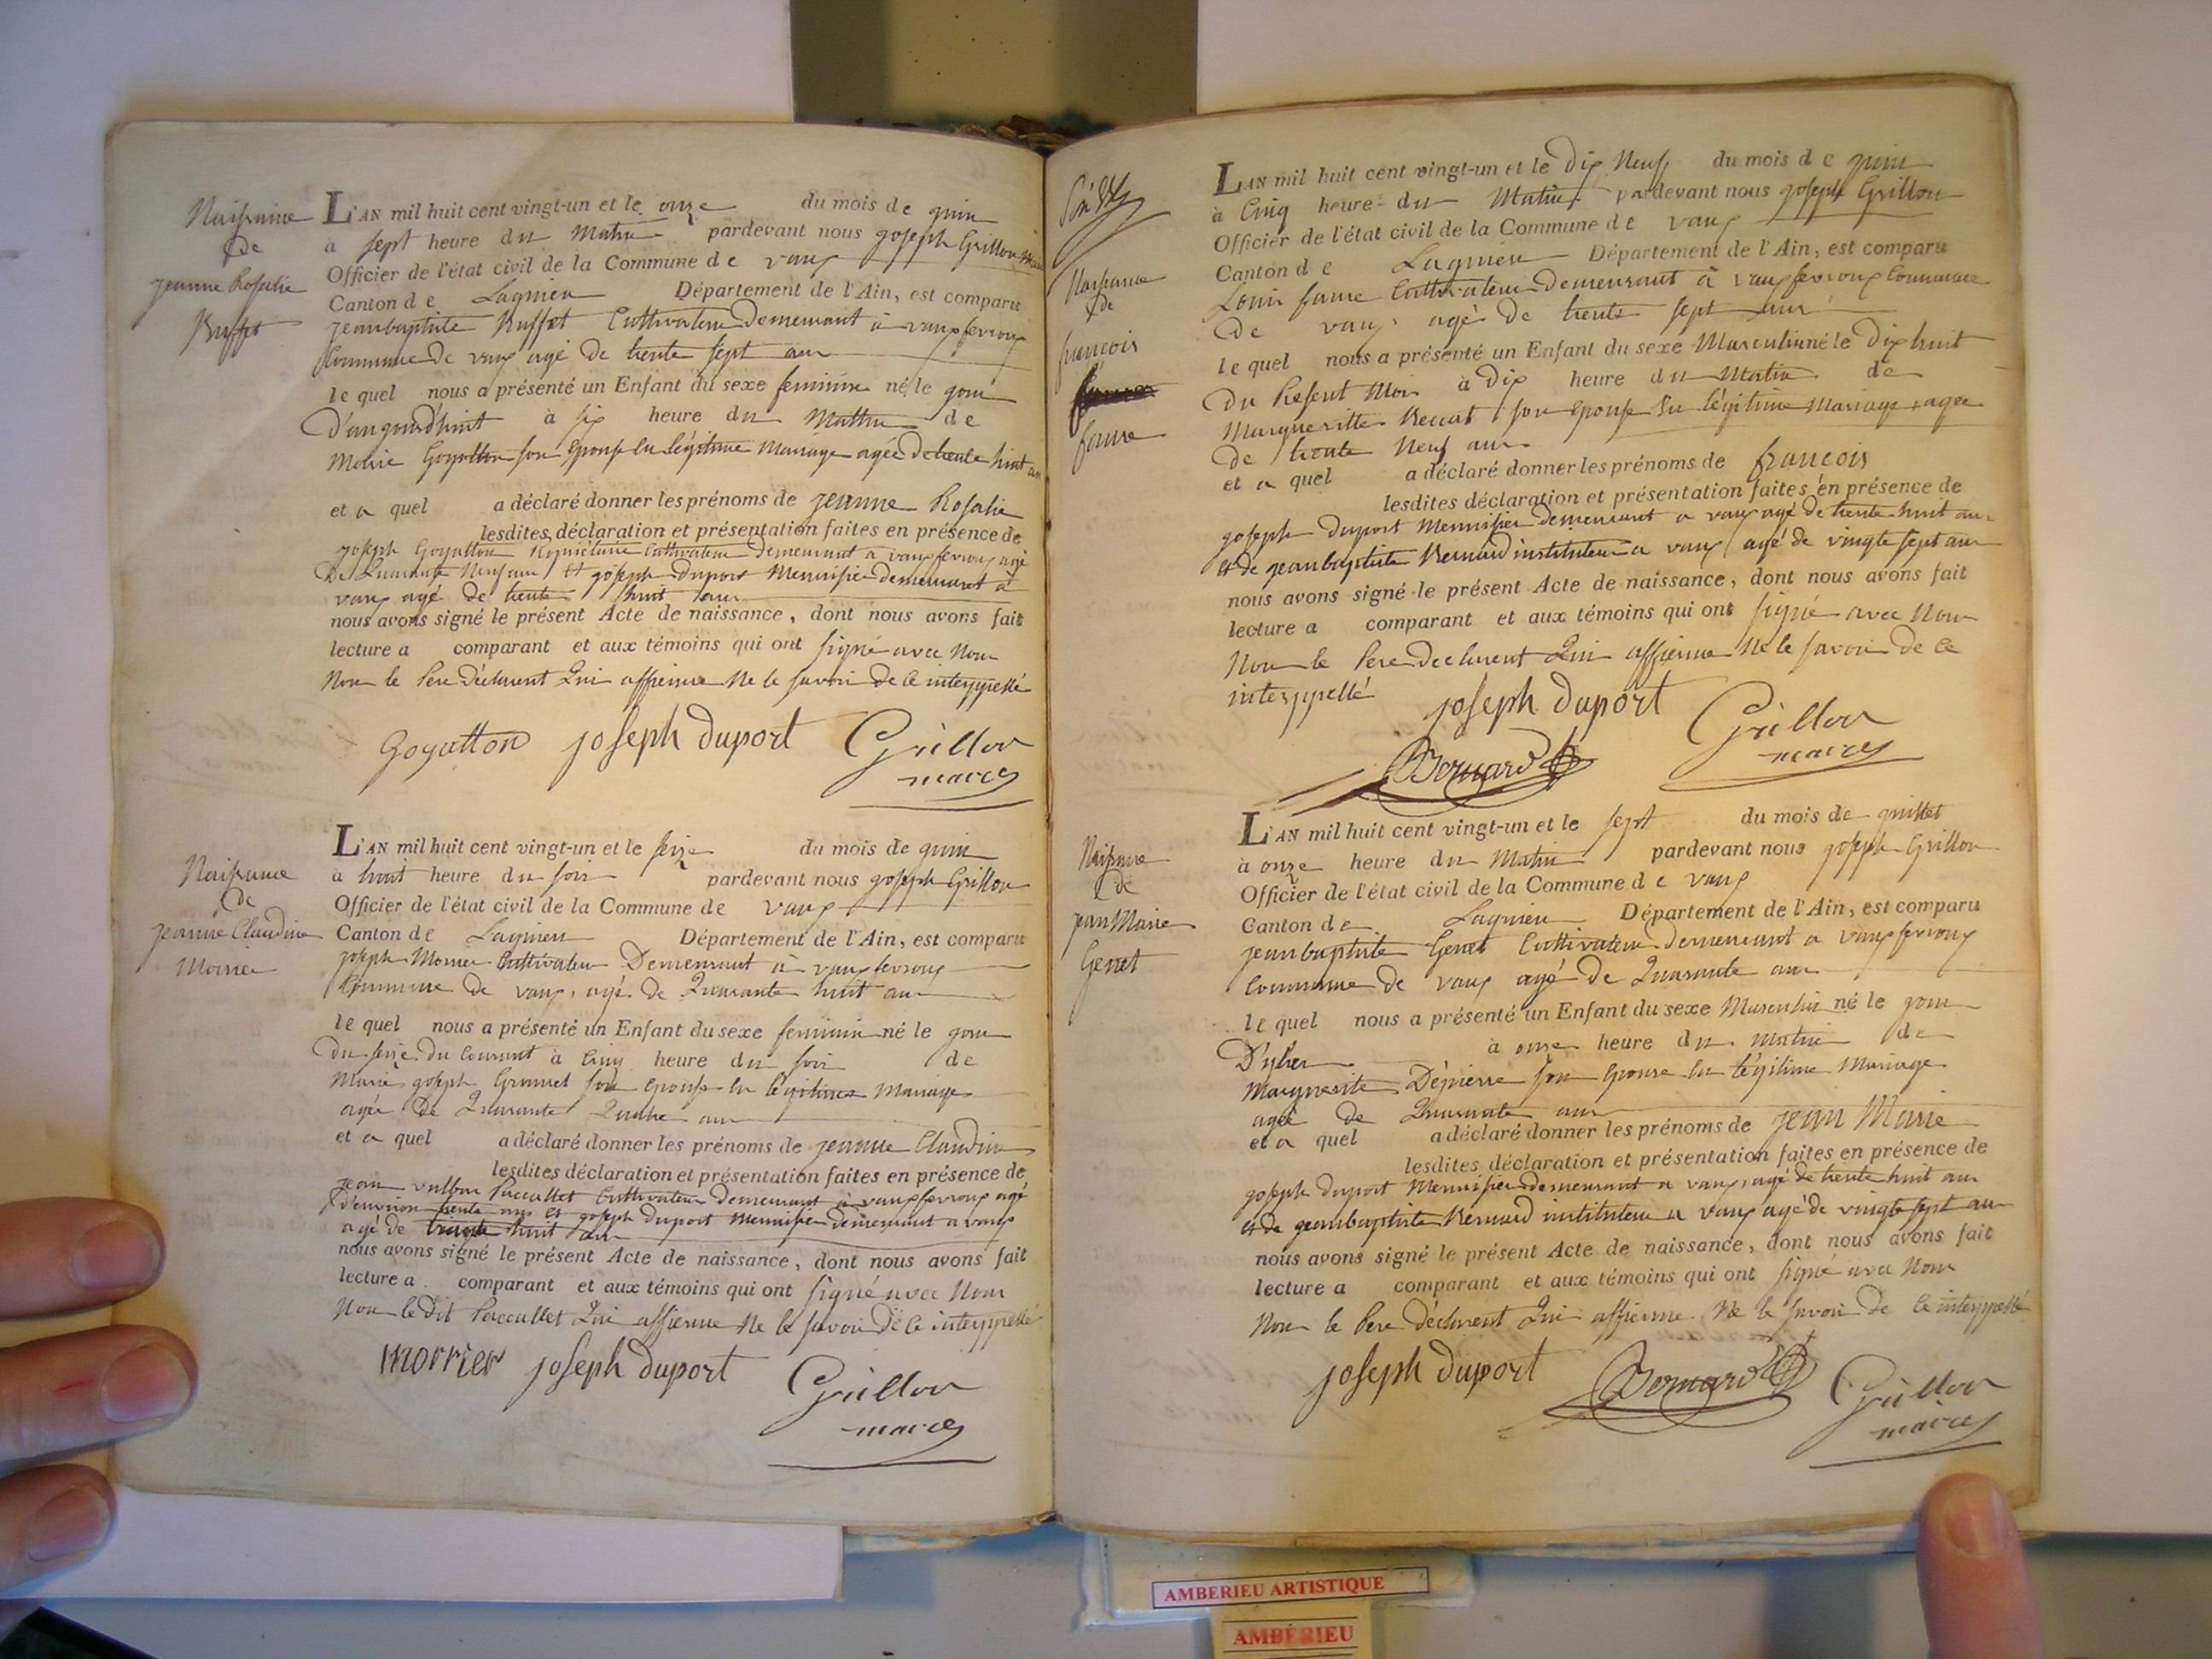 Naissance
de
jeanne Rosalie
Buffet
L'AN mil huit cent vingt-un et le onze du mois de juin
a sept heure du Matin pardevant nous joseph Grillon Maire
Officier de l'état civil de la Commune de vaux
Canton de Lagnieu Département de l'Ain, est comparu
jeanbaptiste Buffet Cultivateur Demeurant à vauxfevroux
Commune de vaux agé de trente sept ans
le quel nous a présenté un Enfant du sexe feminin né le jour
D'aujourd'huit à six heure du Mattin de
Marie Goyatton son Epouse En légitime Mariage agée de trente huit ans
et a quel a déclaré donner les prénoms de jeanne Rosalie
lesdites déclaration et présentation faites en présence de
joseph Goyatton Propriétaire Cultivateur demeurant a vauxfevroux agé
De Quarante Neuf ans et joseph Duport Menuisier demeurant à
vaux agé de trente huit ans
nous avons signé le présent Acte de naissance, dont nous avons fait
lecture a comparant et aux témoins qui ont signé avec Nous
Non le Pere Déclarent Qui affierme Ne le savoir de Ce interppellé
Goyatton joseph duport Grillon
maire
Naissance
de
jeanne Claudine
Morrier
L'AN mil huit cent vingt-un et le seize du mois de juin
à huit heure du soir pardevant nous joseph Grillon
Officier de l'état civil de la Commune de vaux
Canton de Lagnieu Département de l'Ain, est comparu
joseph Morrier Cultivateur Demeurant à vauxfevroux
Commune de vaux, agé de Quarante huit ans
le quel nous a présenté un Enfant du sexe feminin né le jour
Du seize du Courant à Cinq heure du soir de
Marie joseph Grannet son Epouse En légitime Mariage
agée De Quarante Quatre ans
et a quel a déclaré donner les prénoms de jeanne Claudine
lesdites déclaration et présentation faites en présence de
jean Paccallet Cultivateur Demeurant à vauxfevroux agé
d'environ trente ans et joseph Duport Menuisier demeurant a vaux
agé de huit ans
nous avons signé le présent Acte de naissance, dont nous avons fait
lecture a comparant et aux témoins qui ont signé avec Nous
Non le Dit Paccallet Qui affierme Ne le savoir De Ce interppellé
morrier joseph duport Grillon
maire
Naissance
de
francois
faure
L'AN mil huit cent vingt-un et le Dix Neuf du mois de juin
à Cinq heure du Matin pardevant nous joseph Grillon
Officier de l'état civil de la Commune de vaux
Canton de Lagnieu Département de l'Ain, est comparu
Louis faure Cultivateur Demeurant à vauxfevroux Commune
De vaux agé de trente sept ans
le quel nous a présenté un Enfant du sexe Masculin né le Dix huit
Du Présent Mois à Dix heure du Matin de
Margueritte Beccat son Epouse En légitime Mariage, agée
de trente Neuf ans
et a quel a déclaré donner les prénoms de francois
lesdites déclaration et présentation faites en présence de
joseph Duport Menuisier demeurant a vaux agé de trente huit ans
et de jeanbaptiste Bernard instituteur a vaux agé de vingte sept ans
nous avons signé le présent Acte de naissance, dont nous avons fait
lecture a comparant et aux témoins qui ont signé avec Nous
Non le Pere Declarent Qui affierme Ne le savoir de Ce
interppellé
joseph duport Grillon
maire
Bernard
Naissance
de
jean Marie
Genet
L'AN mil huit cent vingt-un et le sept du mois de juillet
à onze heure du Matin pardevant nous joseph Grillon
Officier de l'état civil de la Commune de vaux
Canton de Lagnieu Département de l'Ain, est comparu
jeanbaptiste Genet Cultivateur demeurant a vauxfevroux
Commune de vaux agé de Quarante ans
le quel nous a présenté un Enfant du sexe Masculin né le jour
D'yher à onze heure du Matin de
Marguerite Dépierre son Epouse En légitime Mariage
agée de Quarante ans
et a quel a déclaré donner les prénoms de jean Marie
lesdites déclaration et présentation faites en présence de
joseph Duport Menuisier demeurant a vaux, agé de trente huit ans
et de jeanbaptiste Bernard instituteur a vaux agé de vingte sept ans
nous avons signé le présent Acte de naissance, dont nous avons fait
lecture a comparant et aux témoins qui ont signé avec Nous
Non le Pere déclarent Qui affierme Ne le savoir De Ce interppellé
joseph duport Bernard Grillon
maire
AMBERIEU ARTISTIQUE
AMBÉRIEU